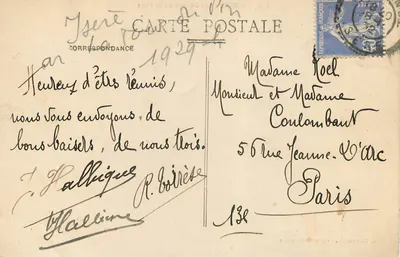 Isère
1929
CARTE POSTALE
CORRESPONDANCE
Heureux d'être réunis,
nous vous envoyons, de
bons baisers, de nous trois.
Madame Noel
Monsieur et Madame
Coulombant
56 Rue Jeanne-d'Arc
Paris
13e